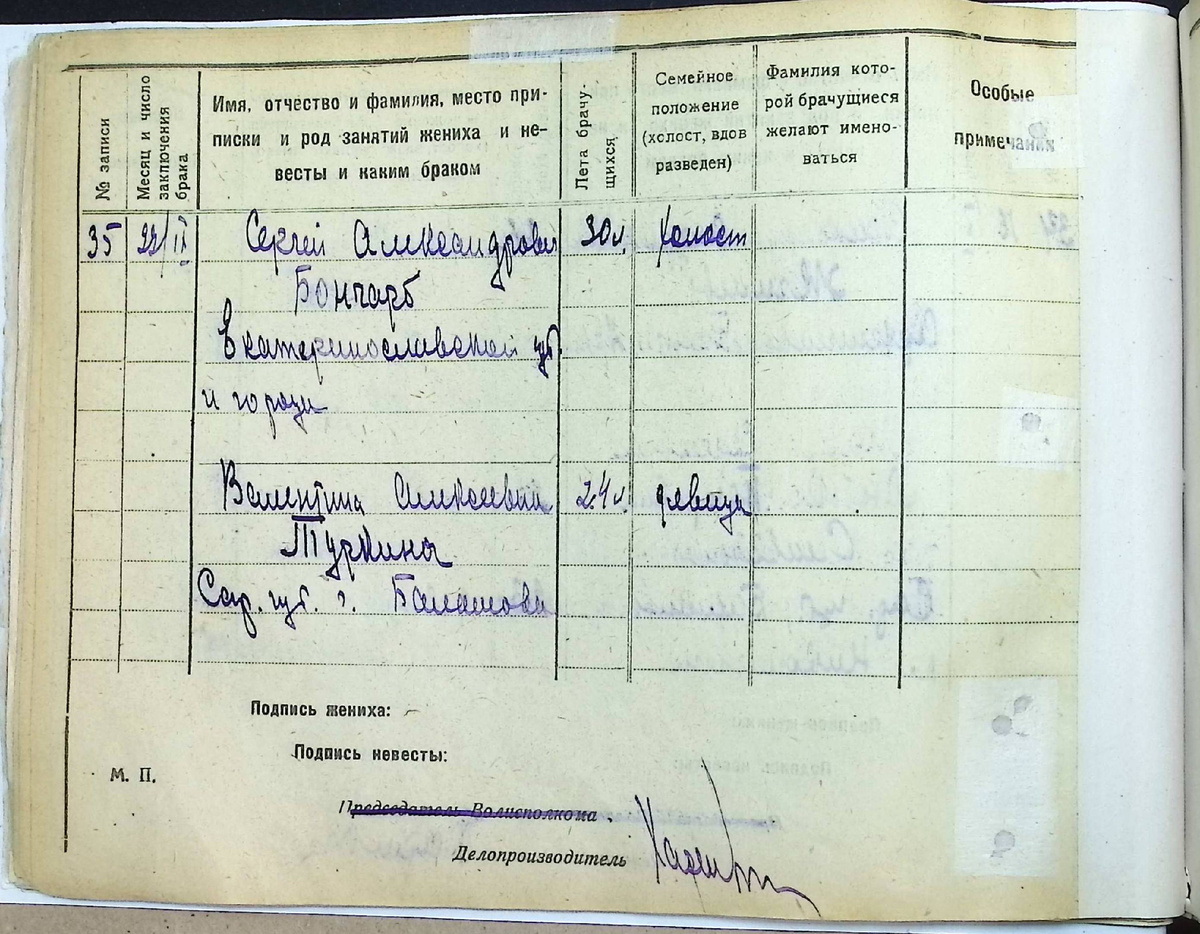 № записи
Месяц и число заключения брака
Имя, отчество и фамилия, место приписки и род занятий жениха и невесты и каким браком
Лета брачущихся.
Семейное положение (холост, вдов разведен)
Фамилия которой брачущиеся желают именоваться
Особые примечания
35 22/IX Сергей Александрович 30 л. холост
Бончарб
Екатеринославской губ.
и города
Валентина Алексеевна 24 л. девица
Туркина
Сар. губ. г. Балашова
Подпись жениха:
Подпись невесты:
М. П.
Председатель Волисполкома
Делопроизводитель